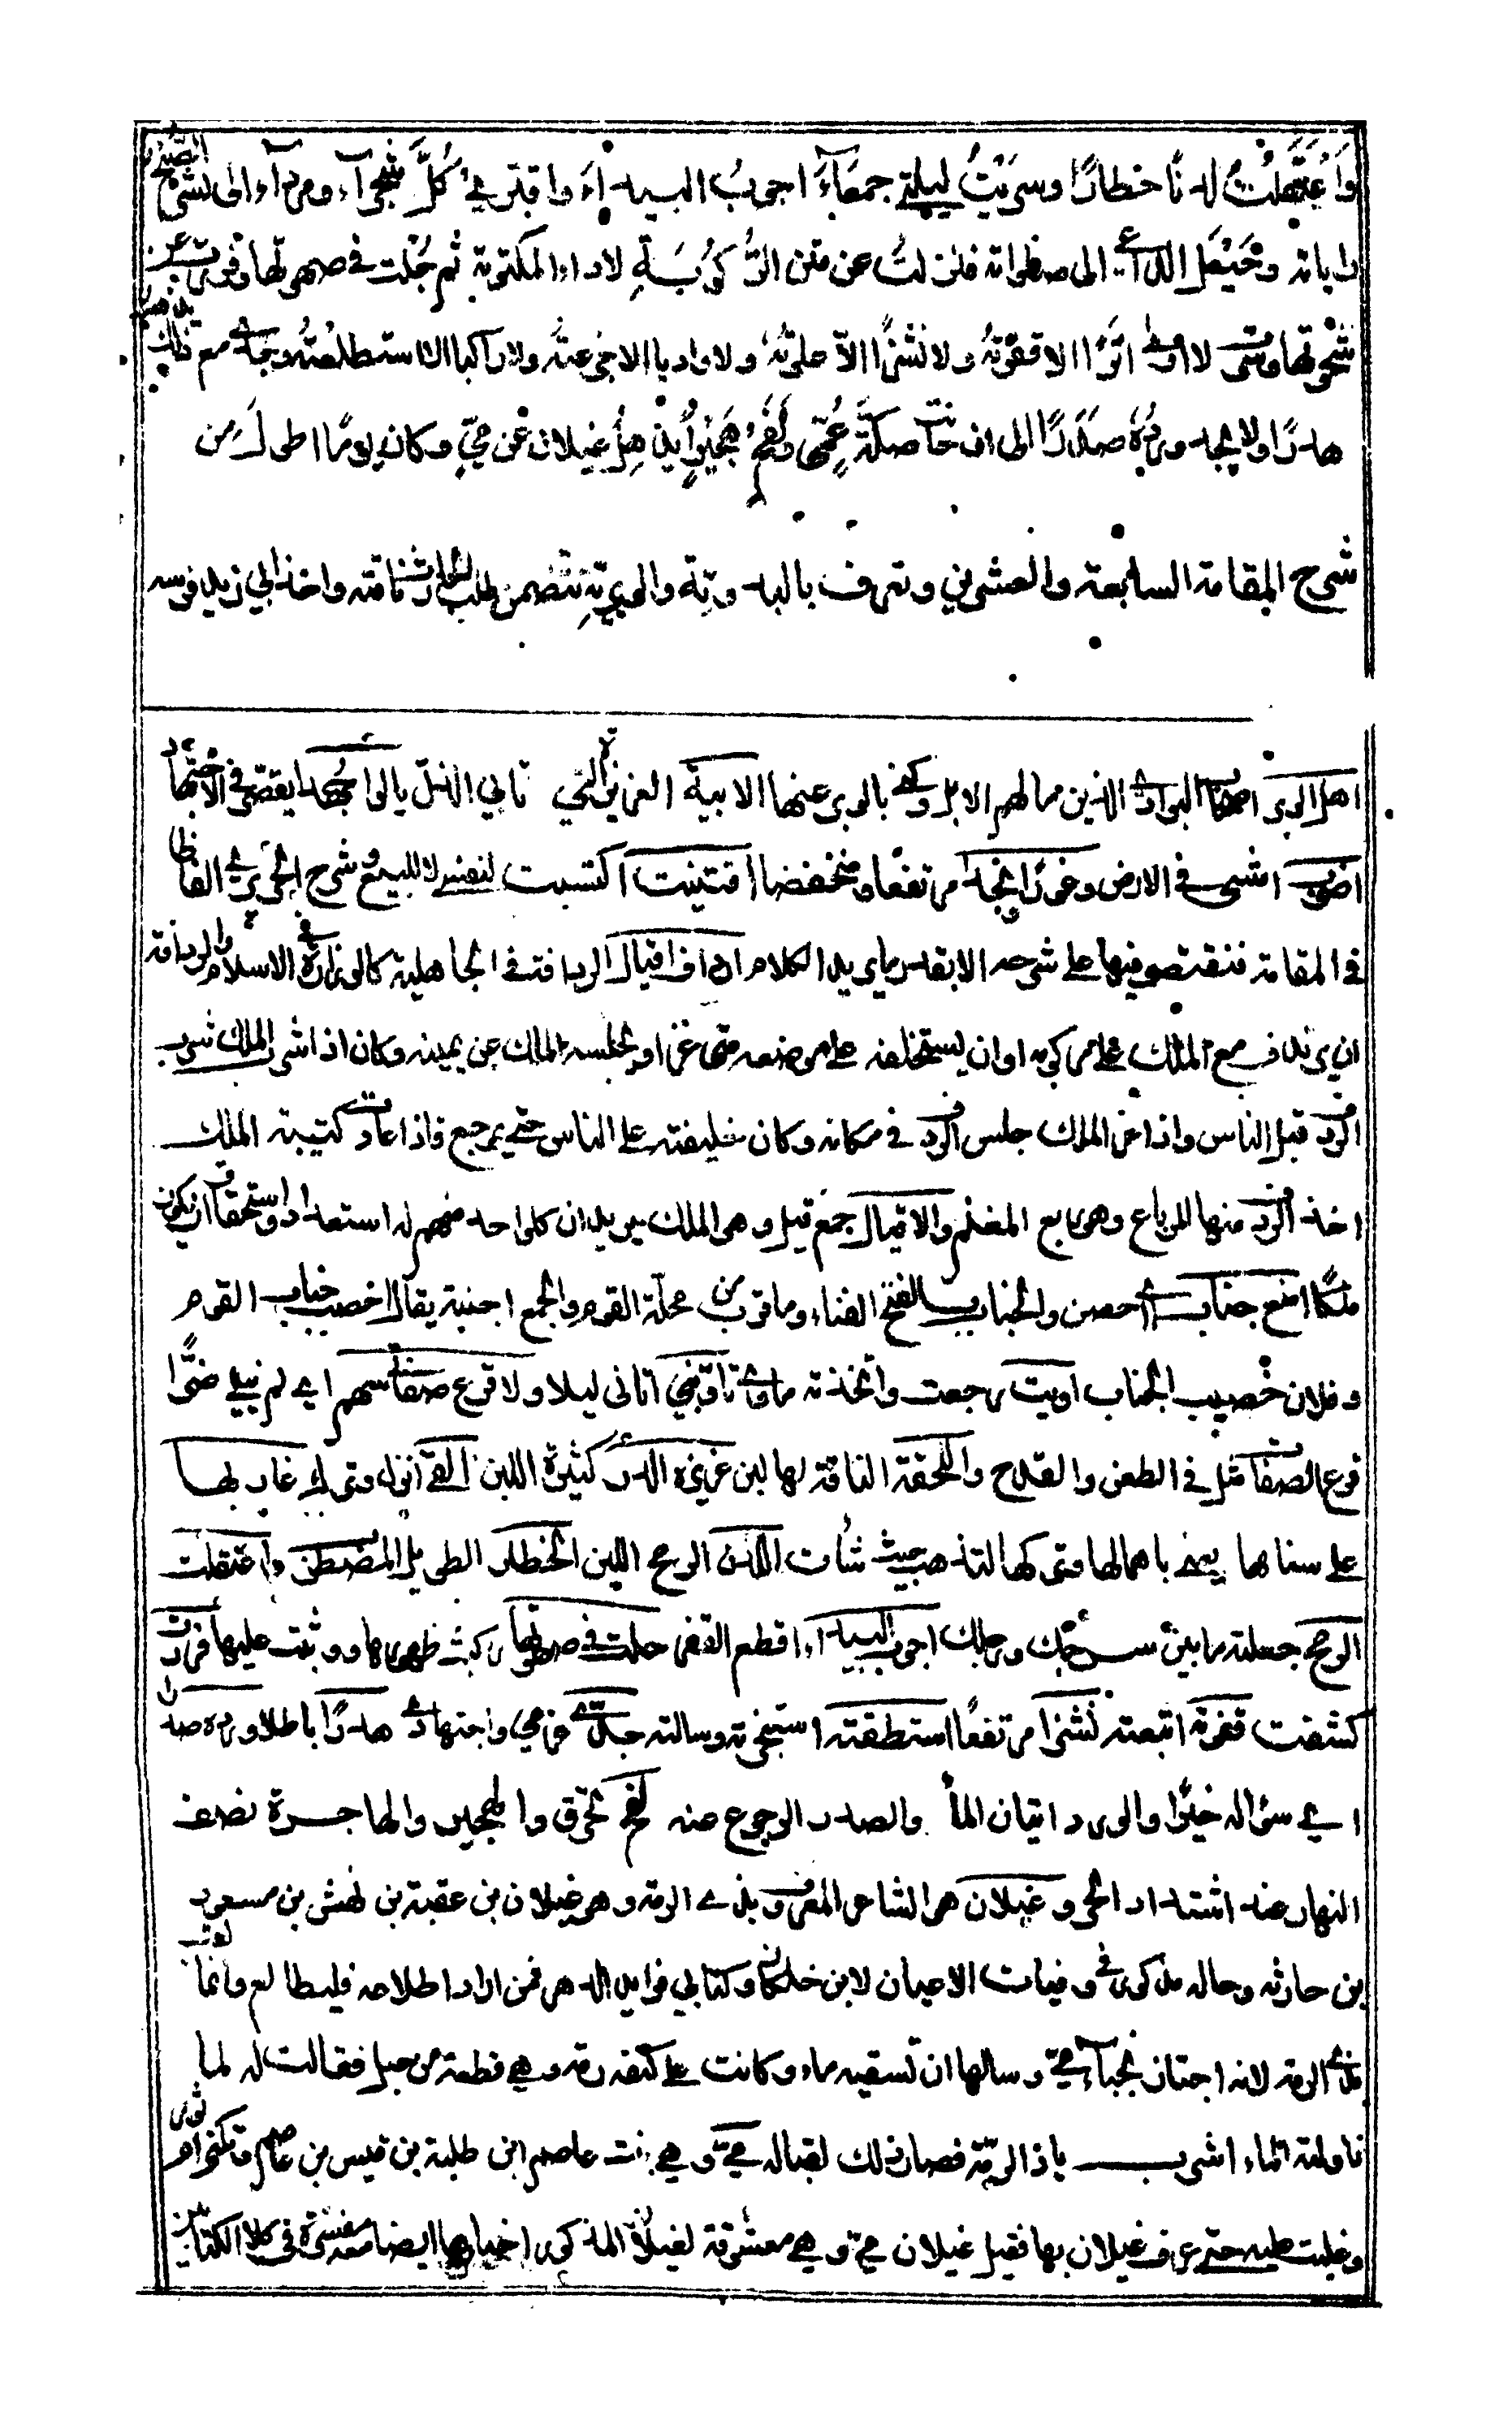 واعتقلت لدنا خطارا وسريت ليلتي جمعاء اجوب البيداء واقتري كل شجراء ومرداء الى ان نشر الصبح
راياته وحيعل الداعي الى صلواته فنزلت عن متن الركوبة لاداء المكتوبة ثم جلت في صهوتها وفررت عن
شحوتها وسرت لا ارى اثرا الا قفوته ولا نشزا الا علوته ولا واديا الا جزعته ولا راكبا الا استطلعته وجدي مع ذلك يذهب
هدرا ولا يجد ورده صدرا الى ان حانت صكة عمي ولفح هجير يذهل غيلان عن مي وكان يوما اطول من
شرح المقامة السابعة والعشرين وتعرف بالبدوية والوبرية تتضمن طلب الحارث ناقته واخذ ابي زيد فرسه
اهل الوبر اصحاب البوادي الذين مالهم الابل وكنى بالوبر عنها الابية العزيزة التي تابى الذل يالوا جهدا يقصر في الاجتهاد
اضرب امشي في الارض وغورا نجدا مرتفعا ومنخفضا اقتنيت اكتسبت لنفسي لا للبيع وشرح الحريري الفاظا
في المقامة فنقتصر فيها على شرحه الا بقدر ما يريد الكلام ارداف اقيال الردافة في الجاهلية كالوزارة في الاسلام والردافة
ان يردف مع الملك على مركوبه او ان يستخلفه على موضعه متى غزا ويجلسه الملك عن يمينه وكان اذا شرب الملك شرب
الردف قبل الناس واذا غزا الملك جلس الردف في مكانه وكان خليفته على الناس حتى يرجع فاذا عادت كتيبة الملك
اخذ الردف منها المرباع وهو ربع المغنم والاقيال جمع قيل وهو الملك يريد ان كل واحد منهم له استعداد واستحقاق ان يكون
ملكا امنع جناب اي احصن والجناب بالفتح الفناء وما قرب من محلة القوم والجمع اجنبة يقال اخصب جناب القوم
وفلان خصيب الجناب اويت رجعت واتخذته ماوى تاوبني اتاني ليلا ولا قرع صفاتي سهم اي لم ينلني ضرا
قرع الصفاة مثل في الطعن والقدح واللقحة الناقة لها لبن غزيرة الدر كثيرة اللبن القي انزل وترك غاربها
على سنامها يعني باهمالها وتركها لتذهب حيث شأت اللدن الرمح اللين الخطار الطويل المضطرب واعتقلت
الرمح جعلته ما بين سرجك ورجلك اجوب البيداء اقطع القفر جلت في صهوتها ركبت ظهرها ووثبت عليها فررت
كشفت قفوته اتبعته نشزا مرتفعا استطقته استخبرته وسالته جدي عزمي واجتهادي هدرا باطلا ورده صدرا
اي سؤاله خيرا والورد اتيان الماء والصدر الرجوع عنه لفح تحرق والهجير والهاجرة نصف
النهار عند اشتداد الحر وغيلان هو الشاعر المعروف بذي الرمة وهو غيلان بن عقبة بن نهش بن مسعود
بن حارثه وحاله مذكور في وفيات الاعيان لابن خلكان وكتابي فوايد الدهر فمن اراد اطلاعه فليطالع وانما لقب
بذي الرمة لانه اجتاز بخباء مي وسالها ان تسقيه ماء وكانت على كتفه رمة وهي قطعة من حبل فقالت له لما
ناولته الماء اشرب يا ذا الرمة فصار ذلك لقبا له مي وهي بنت عاصم ابن طلبة بن قيس بن عاصم
وغلبت عليه حتى عرف غيلان بها فقيل غيلان مي وهي معشوقة لغيلان المذكور اخبارهما ايضا مفسرة في كلا الكتابين